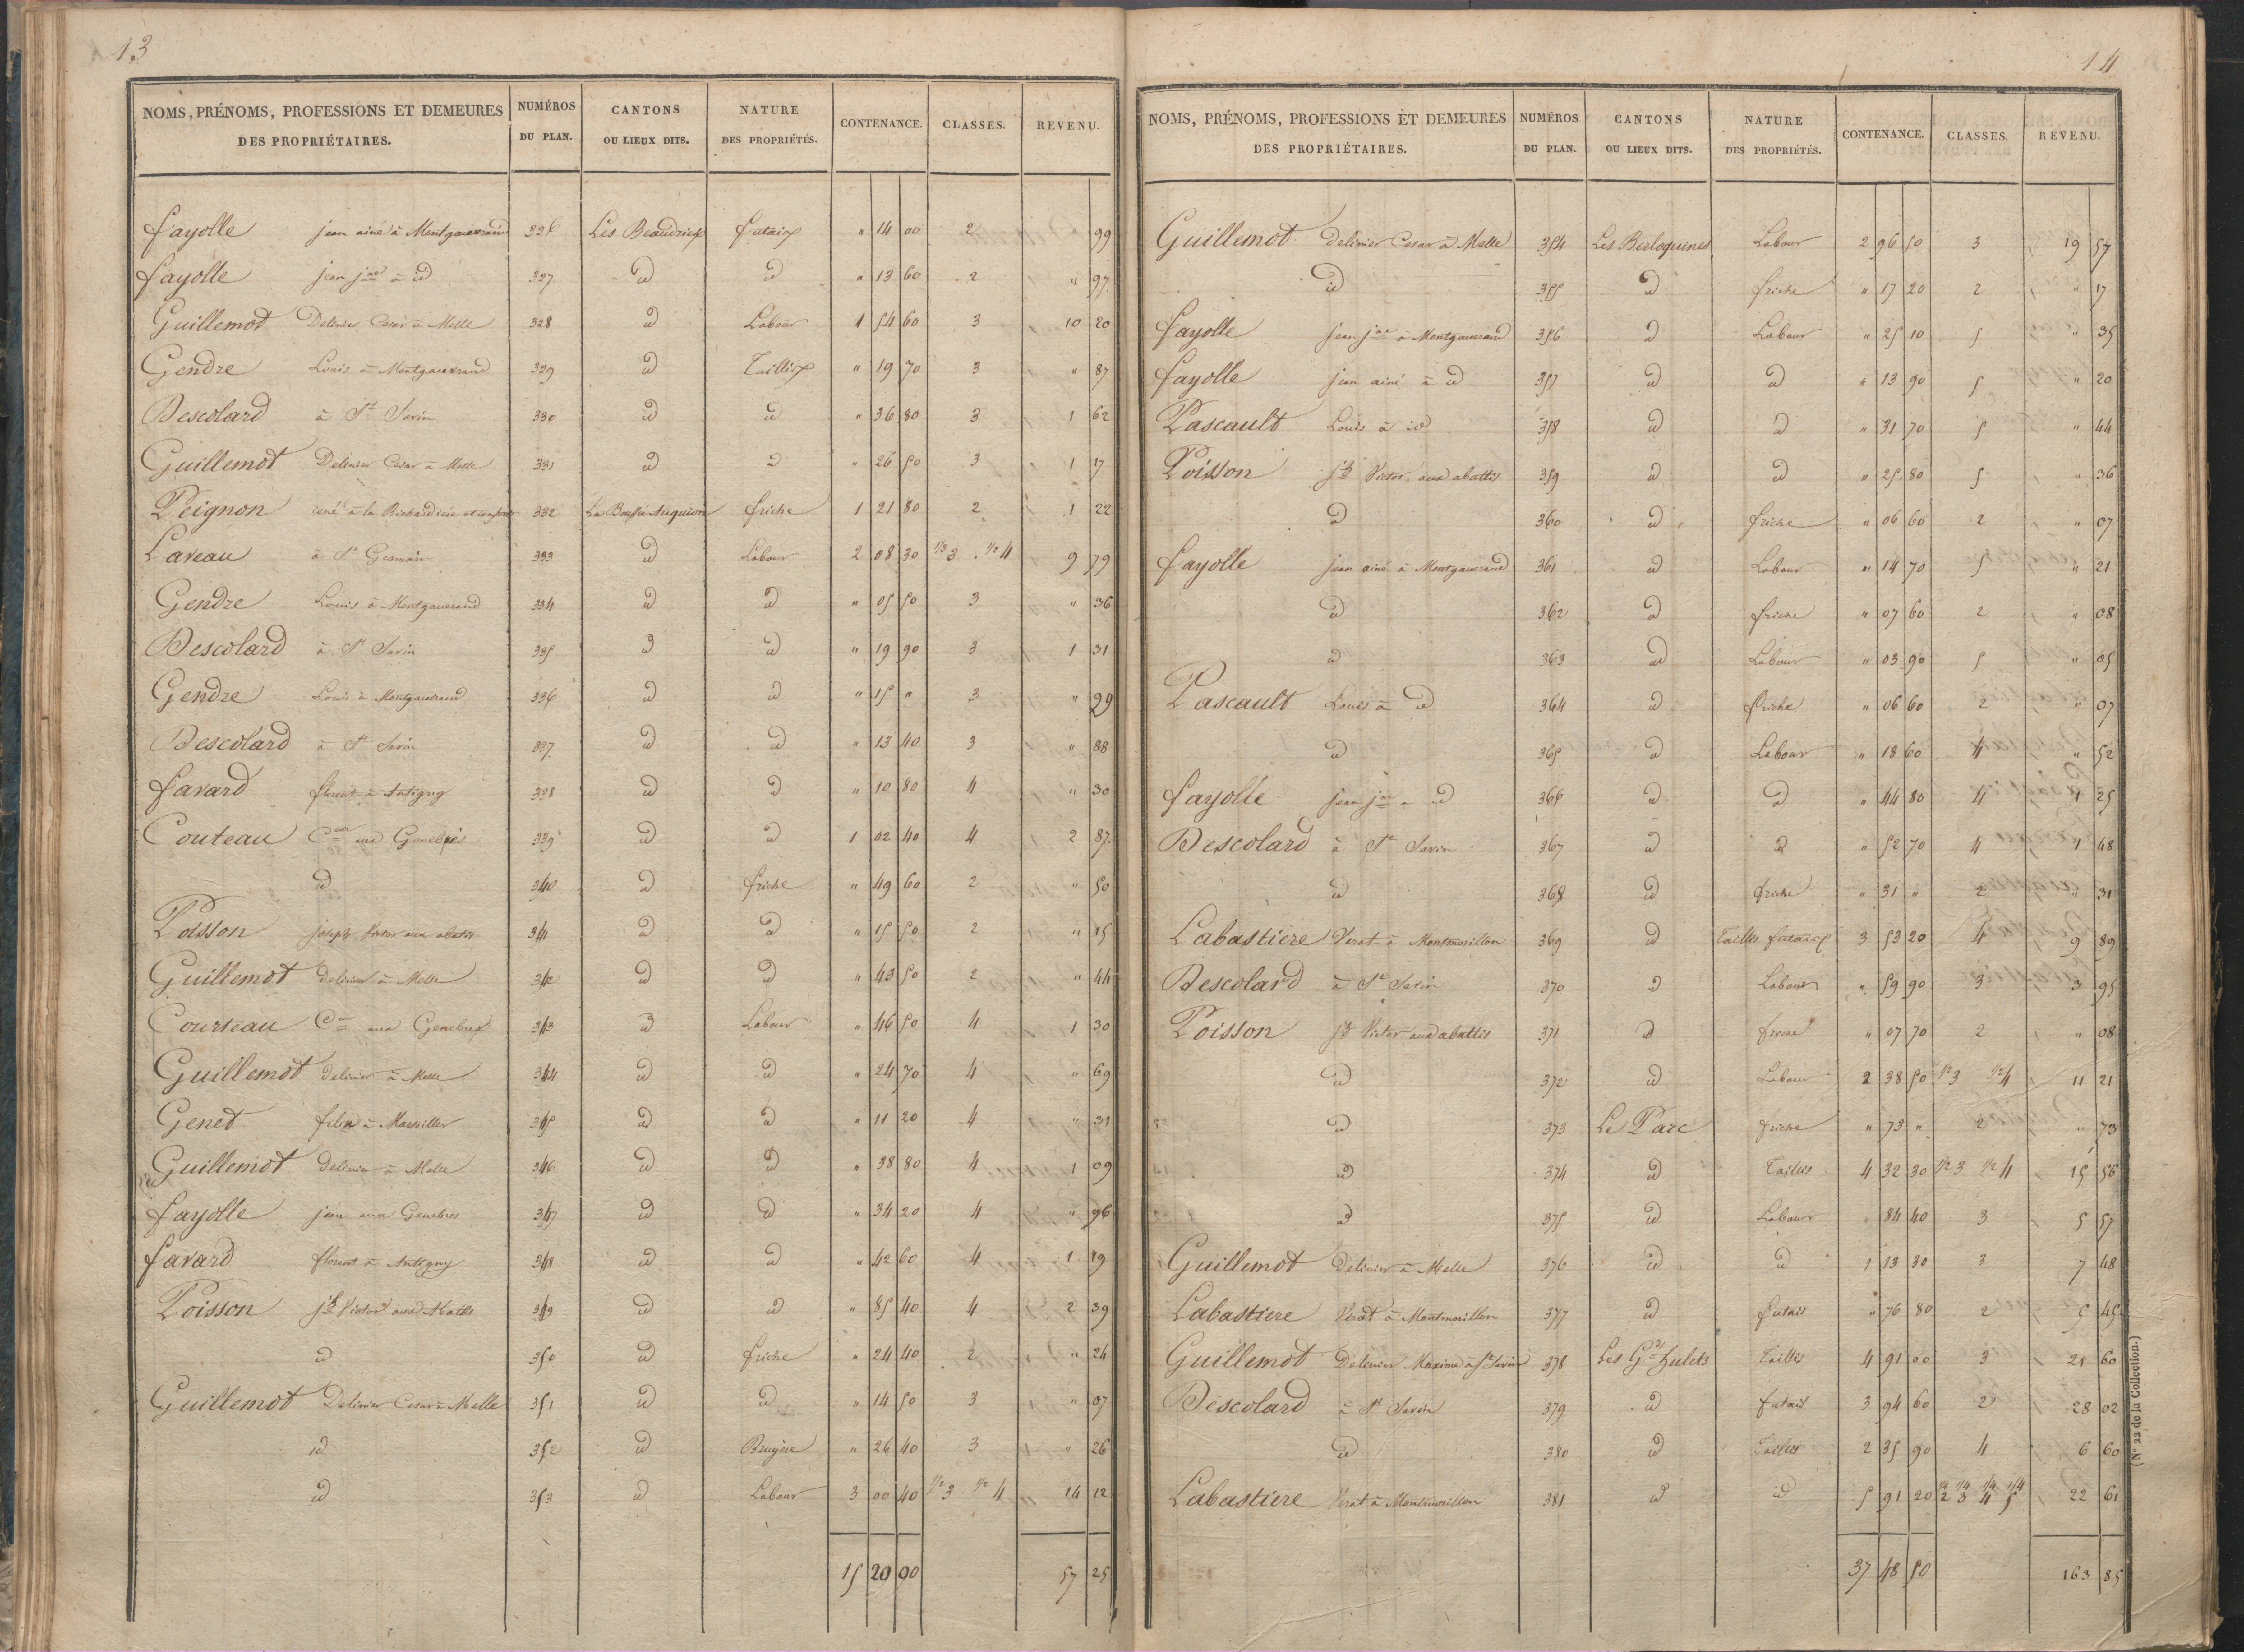 13
NOMS, PRÉNOMS, PROFESSIONS ET DEMEURES DES PROPRIÉTAIRES. NUMÉROS DU PLAN. CANTONS OU LIEUX DITS. NATURE DES PROPRIÉTÉS. CONTENANCE. CLASSES. REVENU.
fayolle jean ainé à Montgauerand 326 Les Beaudrieux futaix " 14 00 2 99
fayolle jean jne à id 327 id id " 13 60 2 " 97
Guillemot Delinier Cesar à Melle 328 id Labour 1 54 60 3 10 20
Gendre Louis à Montgauerand 329 id Taillis " 19 70 3 " 87
Descolard à St Savin 330 id id " 36 80 3 1 62
Guillemot Delinier Cesar à Melle 331 id id " 26 50 3 1 17
Peignon rené à la Richardière 332 friche 1 21 80 2 1 22
Laveau à St Germain 333 id Labour 2 08 30 1/3 3 1/2 4 9 79
Gendre Louis à Montgauerand 334 id id " 05 50 3 " 36
Descolard à St Savin 335 id id " 19 90 3 1 31
Gendre Louis à Montgauerand 336 id id " 15 " 3 " 29
Descolard à St Savin 337 id id " 13 40 3 " 88
favard florent à Antigny 338 id id " 10 80 4 " 30
Couteau aux Genebres 339 id id 1 02 40 4 2 87
id 340 id friche " 49 60 2 " 50
Poisson joseph Victor aux abatis 341 id id " 15 50 2 " 15
Guillemot Delinier à Melle 342 id id " 43 50 2 " 44
Courteau aux Genebres 343 id Labour " 46 50 4 1 30
Guillemot delinier à Melle 344 id id " 24 70 4 " 69
Genet felix à 345 id id " 11 20 4 " 31
Guillemot Delinier à Melle 346 id id " 38 80 4 1 09
fayolle jean aux Genebres 347 id id " 34 20 4 " 96
favard florent à Antigny 348 id id " 42 60 4 1 19
Poisson jh Victor aux Abattis 349 id id " 85 40 4 2 39
id 350 id friche " 24 40 2 " 24
Guillemot Delinier Cesar à Melle 351 id id " 14 50 3 " 07
id 352 id Bruyère " 26 40 3 " 26
id 353 id Labour 3 00 40 1/2 3 1/2 4 14 12
15 20 90 57 25
14
NOMS, PRÉNOMS, PROFESSIONS ET DEMEURES DES PROPRIÉTAIRES. NUMÉROS DU PLAN. CANTONS OU LIEUX DITS. NATURE DES PROPRIÉTÉS. CONTENANCE. CLASSES. REVENU.
Guillemot Delinier Cesar à Melle 354 Les Berloquines Labour 2 96 50 3 19 57
id 355 id friche " 17 20 2 " 17
fayolle jean jne à Montgauerand 356 id Labour " 25 10 5 " 35
fayolle jean ainé à id 357 id id " 13 90 5 " 20
Pascault Louis à id 358 id id " 31 70 5 " 44
Poisson jh Victor aux abattis 359 id id " 25 80 5 " 36
id 360 id friche " 06 60 2 " 07
fayolle jean ainé à Montgauerand 361 id Labour " 14 70 5 " 21
id 362 id friche " 07 60 2 " 08
id 363 id Labour " 03 90 5 " 05
Pascault Louis à id 364 id friche " 06 60 2 " 07
id 365 id Labour " 18 60 4 " 52
fayolle jean jne à id 366 id id " 44 80 4 1 25
Descolard à St Savin 367 id id " 52 70 4 1 48
id 368 id friche " 31 " 2 " 31
Labastiere Verat à Montmorillon 369 id Taillis futaix 3 53 20 4 9 89
Descolard à St Savin 370 id Labour " 59 90 3 3 95
Poisson jh Victor aux abattis 371 id friche " 07 70 2 " 08
id 372 id Labour 2 38 50 1/2 3 1/2 4 11 21
id 373 Le Parc friche " 73 " 2 " 73
id 374 id Taillis 4 32 30 1/2 3 1/2 4 15 56
id 375 id Labour " 84 40 3 5 57
Guillemot Delinier à Melle 376 id id 1 13 30 3 7 48
Labastiere Verat à Montmorillon 377 id futais " 76 80 2 5 45
Guillemot Delinier Maxime à St Savin 378 Taillis 4 91 00 3 21 60
Descolard à St Savin 379 id futais 3 94 60 2 28 02
id 380 id Taillis 2 35 90 4 6 60
Labastiere Verat à Montmorillon 381 id id 5 91 20 1/4 2 1/4 3 1/4 4 1/4 5 22 61
37 48 50 163 85
(N° 22 de la Collection.)